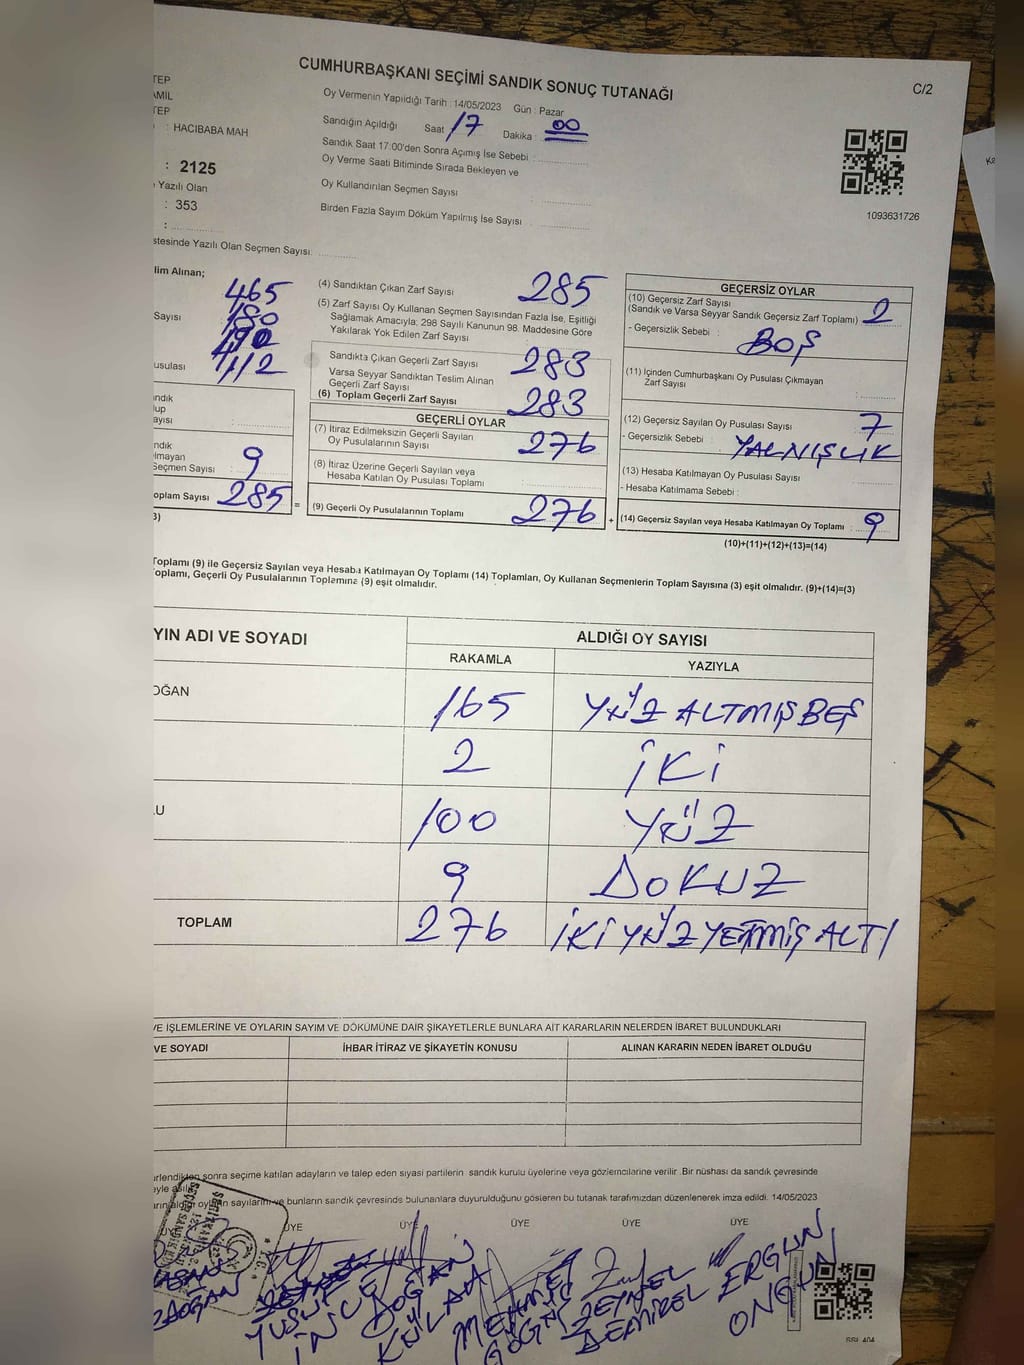 CUMHURBAŞKANI SEÇİMİ SANDIK SONUÇ TUTANAĞI
C/2
TEP
AMİL
TEP
: HACIBABA MAH
: 2125
Yazılı Olan
: 353
Oy Vermenin Yapıldığı Tarih : 14/05/2023 Gün : Pazar
Sandığın Açıldığı Saat 17 Dakika : 00
Sandık Saat 17:00'den Sonra Açımış İse Sebebi :
Oy Verme Saati Bitiminde Sırada Bekleyen ve
Oy Kullandırılan Seçmen Sayısı :
Birden Fazla Sayım Döküm Yapılmış İse Sayısı :
1093631726
stesinde Yazılı Olan Seçmen Sayısı:
lim Alınan;
465
Sayısı 180
usulası 412
ndık
lup
ayısı :
ndık
lmayan
Seçmen Sayısı : 9
oplam Sayısı 285 =
3)
(4) Sandıktan Çıkan Zarf Sayısı 285
(5) Zarf Sayısı Oy Kullanan Seçmen Sayısından Fazla İse, Eşitliği
Sağlamak Amacıyla; 298 Sayılı Kanunun 98. Maddesine Göre
Yakılarak Yok Edilen Zarf Sayısı :
Sandıkta Çıkan Geçerli Zarf Sayısı 283
Varsa Seyyar Sandıktan Teslim Alınan
Geçerli Zarf Sayısı
(6) Toplam Geçerli Zarf Sayısı 283
GEÇERLİ OYLAR
(7) İtiraz Edilmeksizin Geçerli Sayılan
Oy Pusulalarının Sayısı 276
(8) İtiraz Üzerine Geçerli Sayılan veya
Hesaba Katılan Oy Pusulası Toplamı :
(9) Geçerli Oy Pusulalarının Toplamı 276 +
GEÇERSİZ OYLAR
(10) Geçersiz Zarf Sayısı
(Sandık ve Varsa Seyyar Sandık Geçersiz Zarf Toplamı) 2
- Geçersizlik Sebebi : BOŞ
(11) İçinden Cumhurbaşkanı Oy Pusulası Çıkmayan
Zarf Sayısı :
(12) Geçersiz Sayılan Oy Pusulası Sayısı 7
- Geçersizlik Sebebi : YALNIŞLIK
(13) Hesaba Katılmayan Oy Pusulası Sayısı :
- Hesaba Katılmama Sebebi :
(14) Geçersiz Sayılan veya Hesaba Katılmayan Oy Toplamı : 9
(10)+(11)+(12)+(13)=(14)
Toplamı (9) ile Geçersiz Sayılan veya Hesaba Katılmayan Oy Toplamı (14) Toplamları, Oy Kullanan Seçmenlerin Toplam Sayısına (3) eşit olmalıdır. (9)+(14)=(3)
oplamı, Geçerli Oy Pusulalarının Toplamına (9) eşit olmalıdır.
YIN ADI VE SOYADI ALDIĞI OY SAYISI
RAKAMLA YAZIYLA
OĞAN 165 YÜZ ALTMIŞ BEŞ
2 İKİ
LU 100 YÜZ
9 DOKUZ
TOPLAM 276 İKİ YÜZ YETMİŞ ALTI
VE İŞLEMLERİNE VE OYLARIN SAYIM VE DÖKÜMÜNE DAİR ŞİKAYETLERLE BUNLARA AİT KARARLARIN NELERDEN İBARET BULUNDUKLARI
VE SOYADI İHBAR İTİRAZ VE ŞİKAYETİN KONUSU ALINAN KARARIN NEDEN İBARET OLDUĞU
rlendikten sonra seçime katılan adayların ve talep eden siyasi partilerin sandık kurulu üyelerine veya gözlemcilerine verilir. Bir nüshası da sandık çevresinde
eyle asılır.
arın aldığı oyların sayılarını ve bunların sandık çevresinde bulunanlara duyurulduğunu gösteren bu tutanak tarafımızdan düzenlenerek imza edildi. 14/05/2023
ÜYE ÜYE ÜYE ÜYE ÜYE ÜYE
YUSUF İNCE
DOĞAN
MEHMET
ZEYNEL DEMİREL
ERGUN ONGUN